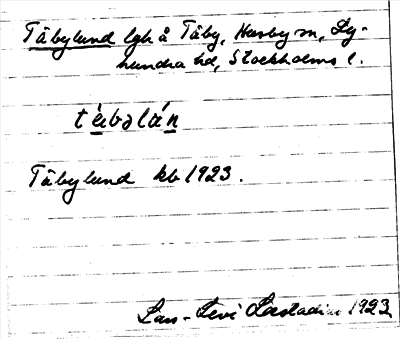 Täbylund lgh å Täby, Husby sn, Ly-
hundra hd, Stockholms l.
tèbəlán
Täbylund kb 1923.
Lars-Levi Læstadius 1923